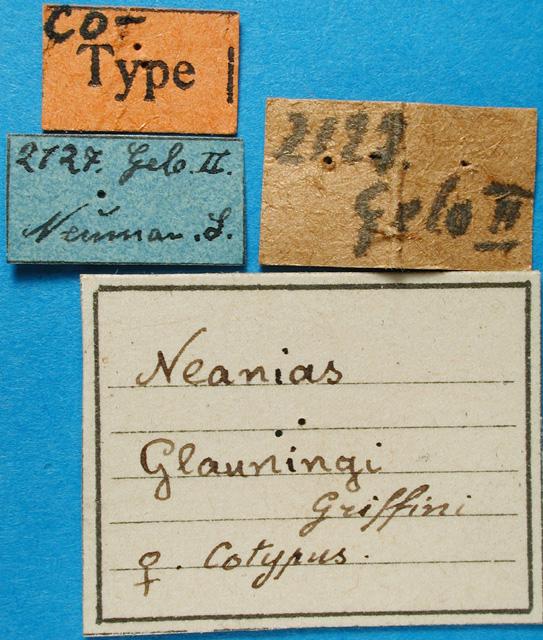 Co-
Type
2127. Gelb. II.
Neuman. S.
Gelb II
Neanias
Glauningi
Griffini
♀. Cotypus.